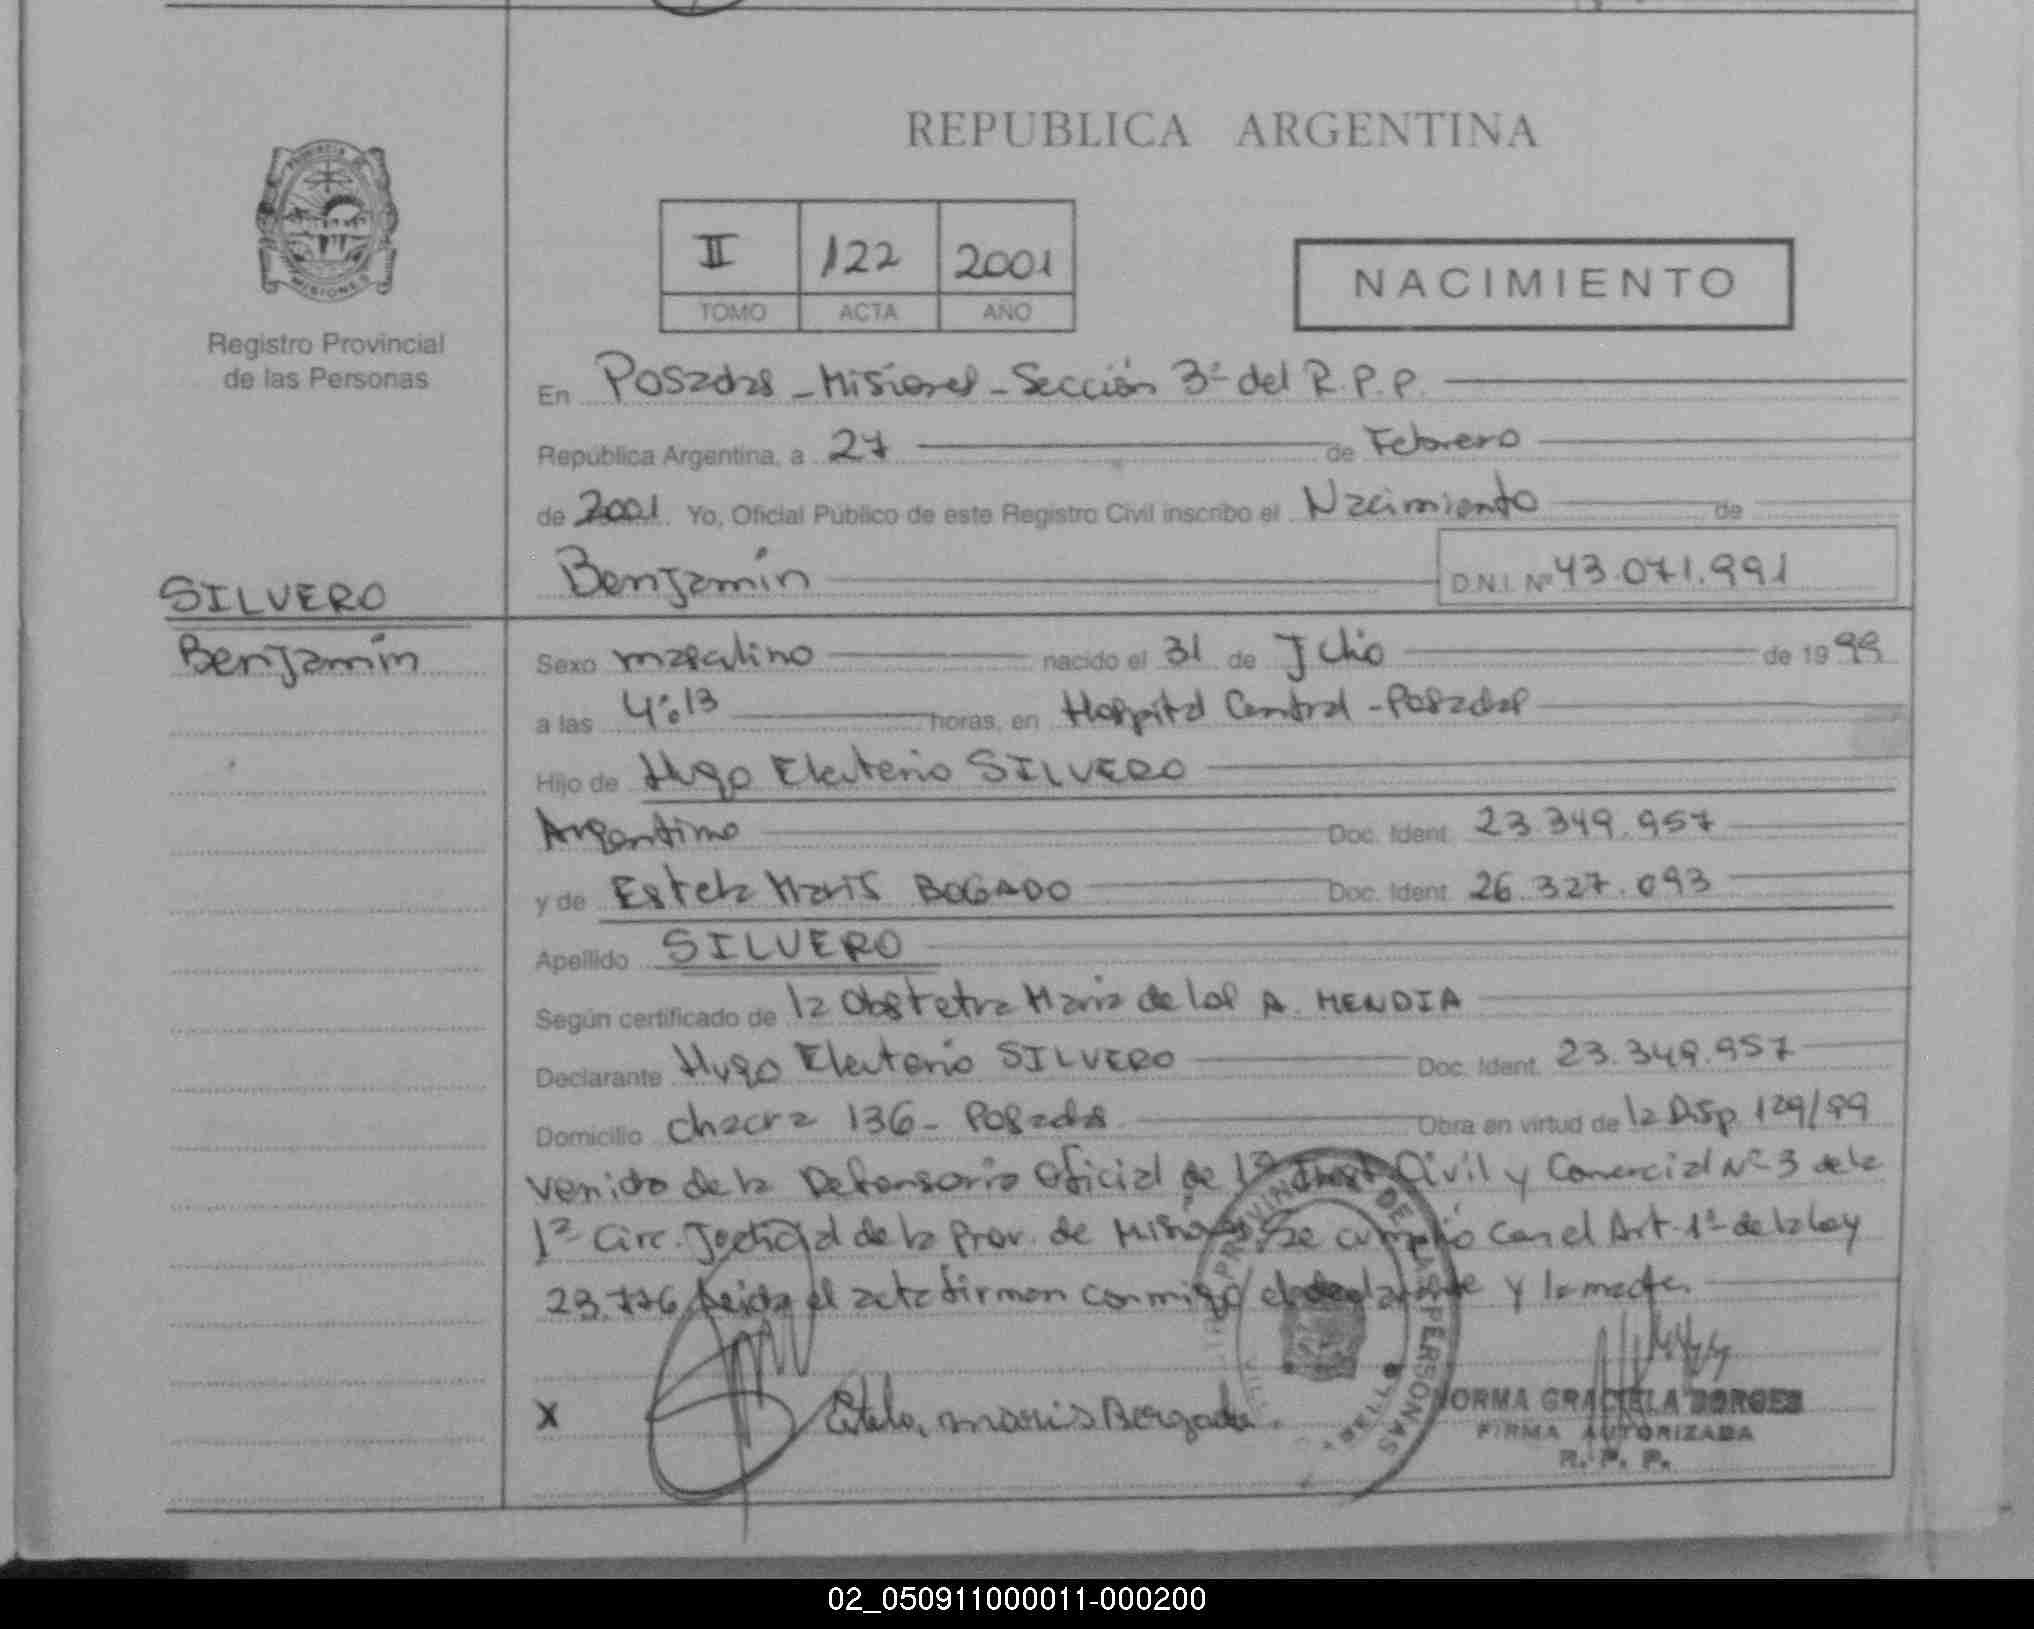 REPUBLICA ARGENTINA
PROVINCIA DE
MISIONES
Registro Provincial
de las Personas
II 122 2001
TOMO ACTA AÑO
NACIMIENTO
En Posadas - Misiones - Sección 3ª del R.P.P.
República Argentina, a 27 de Febrero
de 2001 Yo, Oficial Público de este Registro Civil inscribo el Nacimiento de
Benjamín D.N.I. Nº 43.071.991
SILVERO
Benjamín
Sexo masculino nacido el 31 de Julio de 1999
a las 4:13 horas, en Hospital Central - Posadas
Hijo de Hugo Eleuterio SILVERO
Argentino Doc. Ident. 23.349.957
y de Estela Maris BOGADO Doc. Ident. 26.327.093
Apellido SILVERO
Según certificado de la Obstetra Maria de los A. MENDIA
Declarante Hugo Eleuterio SILVERO Doc. Ident. 23.349.957
Domicilio Chacra 136 - Posadas Obra en virtud de la Disp. 129/99
venido de la Defensoria Oficial de 1ª Inst Civil y Comercial Nº 3 de la
1ª Circ. Judicial de la Prov. de Misiones Se cumplió con el Art. 1º de la Ley
23.776 leida el acta firman conmigo el declarante y la madre.
X Estela, maris Bogado.
NORMA GRACIELA BORGES
FIRMA AUTORIZADA
R. P. P.
02_050911000011-000200